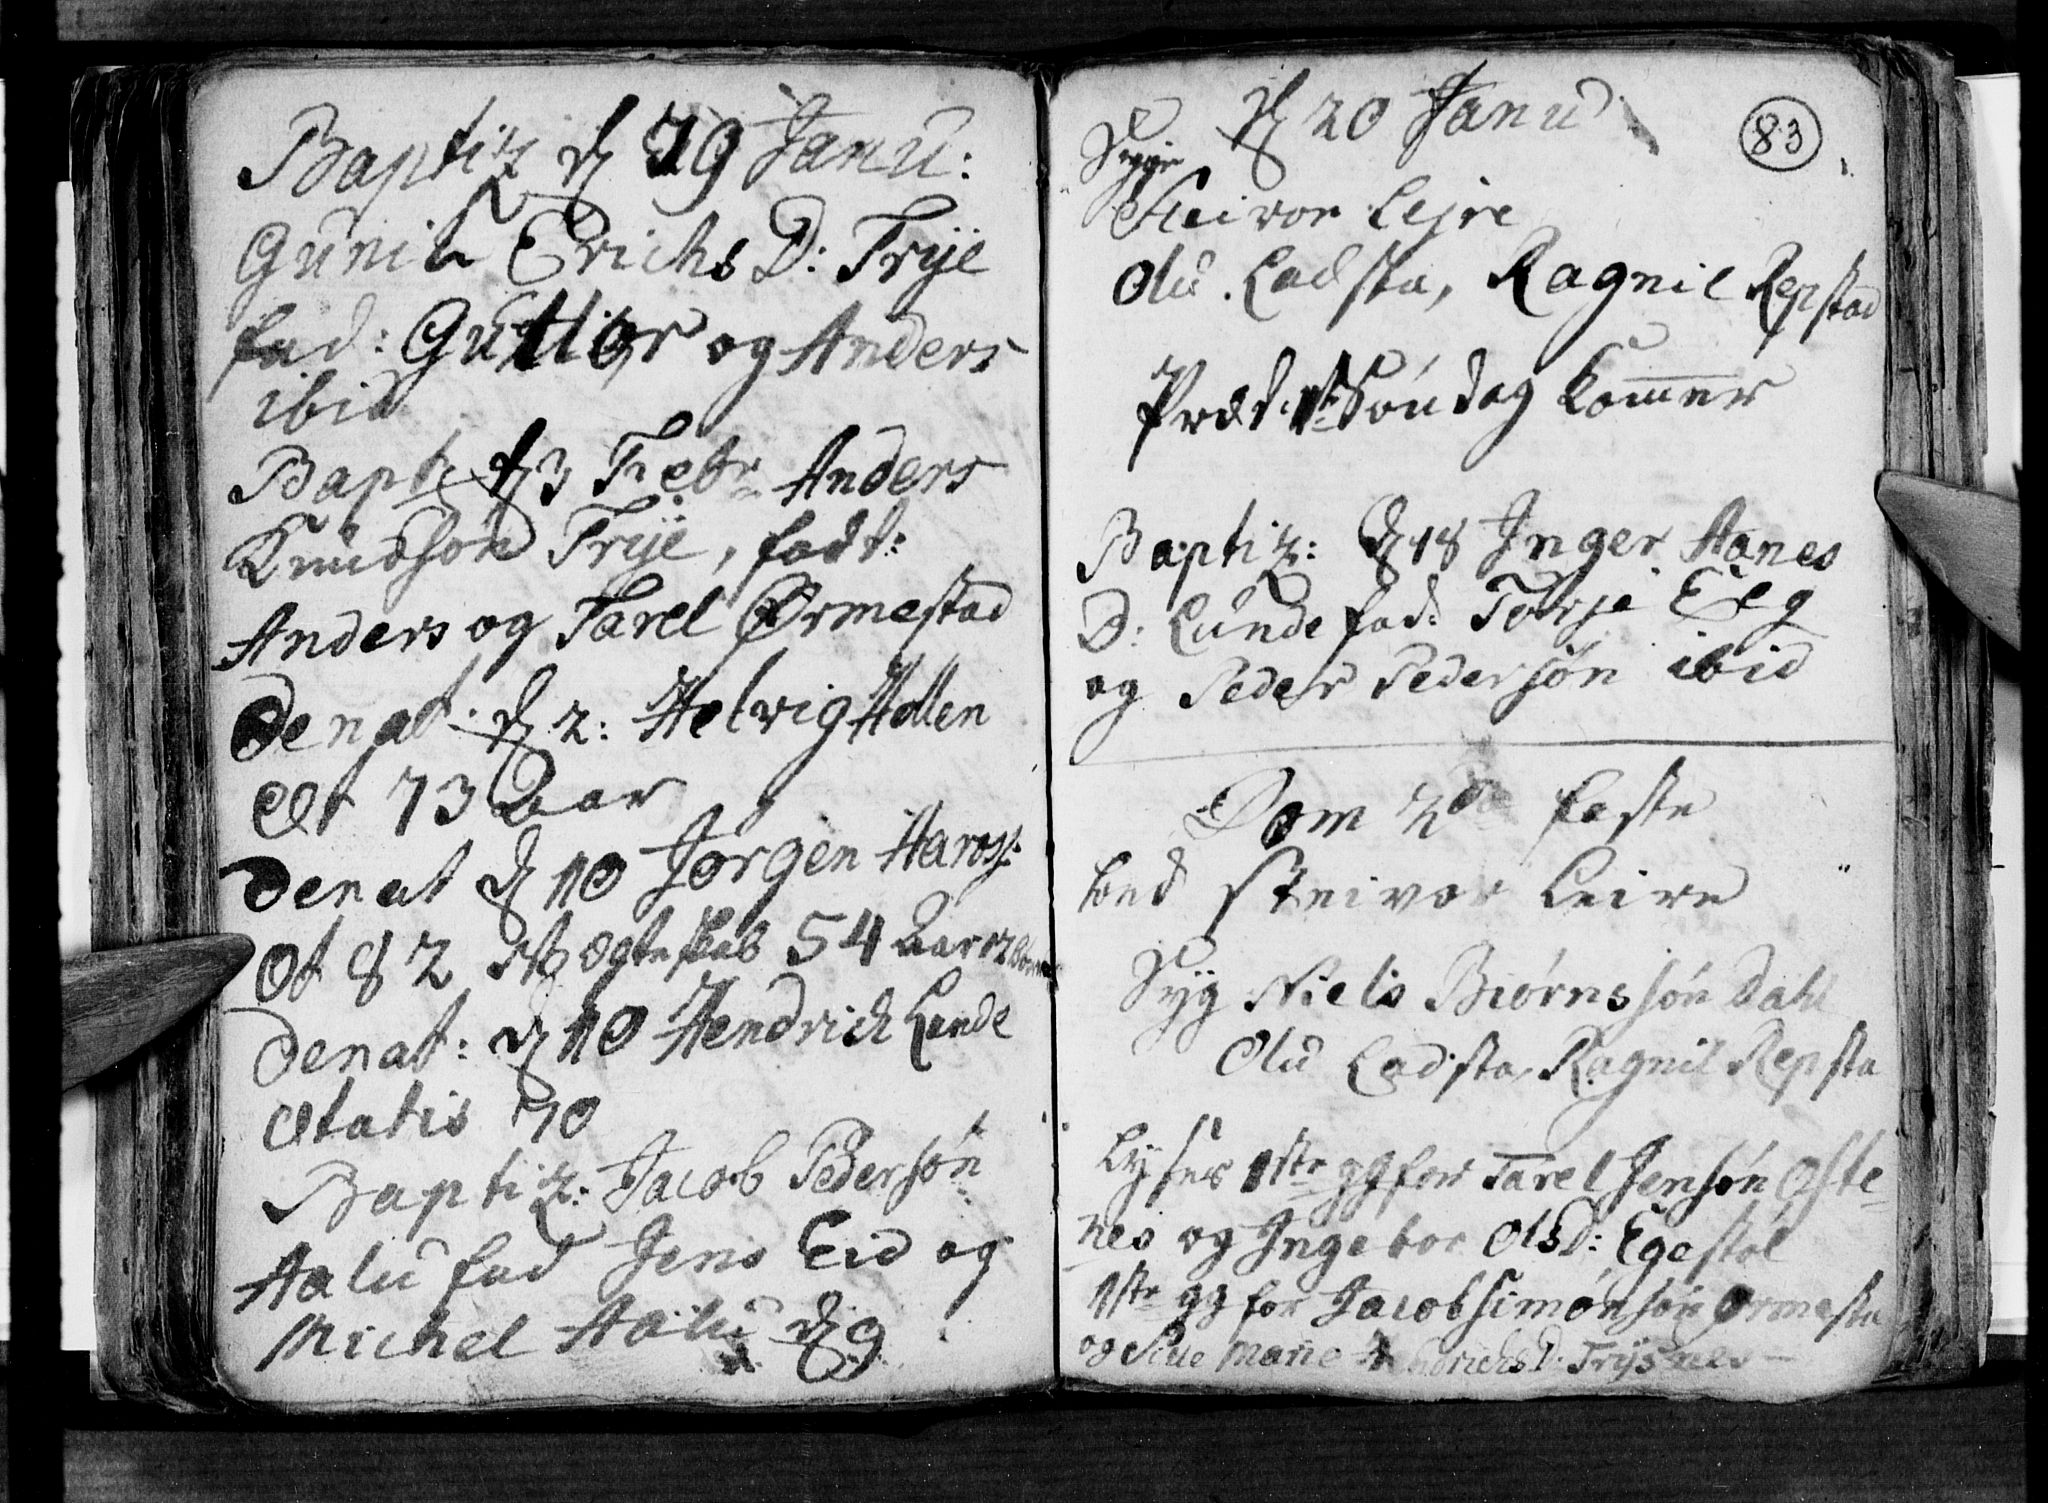 Baptiz d 19 Janu:
Gunil Erichs D: Trije
fad: Gutlor og Anders
ibid
Bapt d 3 Febr Anders
Knudsøn Trije, fadd:
Anders og Tarel Ørmestad
Denat: d 2: Helvig Hollen
Æt 73 Aar
Denat d 10 Jørgen Haaross:
Æt 82 ægteskab 54 Aar
Denat: d 10 Hendrich Lande
Ætatis 70
Baptiz: Jacob Pedersøn
Aalu fad Jens Eid og
Michel Aalu d 9
83
d 20 Janu
Syge
Steivor Lejre
Olu. Ladsta, Ragnil Repstad
Præd: 1st Søndag kommer
Baptiz: d 18 Inger Aanes
D: Lunde fad: Torje Eeg
og Peder Pedersøn ibid
Dom 2de faste
bed Steivor Leire
Syg Niels Biørnssøn Dahl
Olu Ladsta, Ragnil Repsta
Lyses 1ste gg for Tarel Jensøn Ofte-
nes og Ingebor OlsD: Egestøl
1ste gg for Jacob Simonsøn Ormesta
og Marie HendrichsD: Trysnes